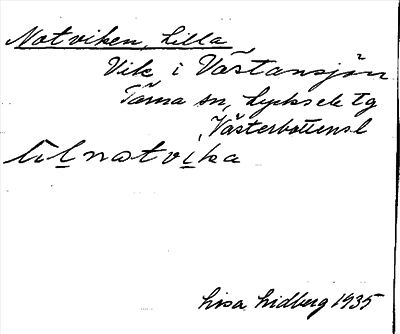 Notviken, Lilla
Vik i Västansjön
Tärna sn, Lycksele tg
Västerbottensl
lilnotvika
Lisa Lidberg 1935